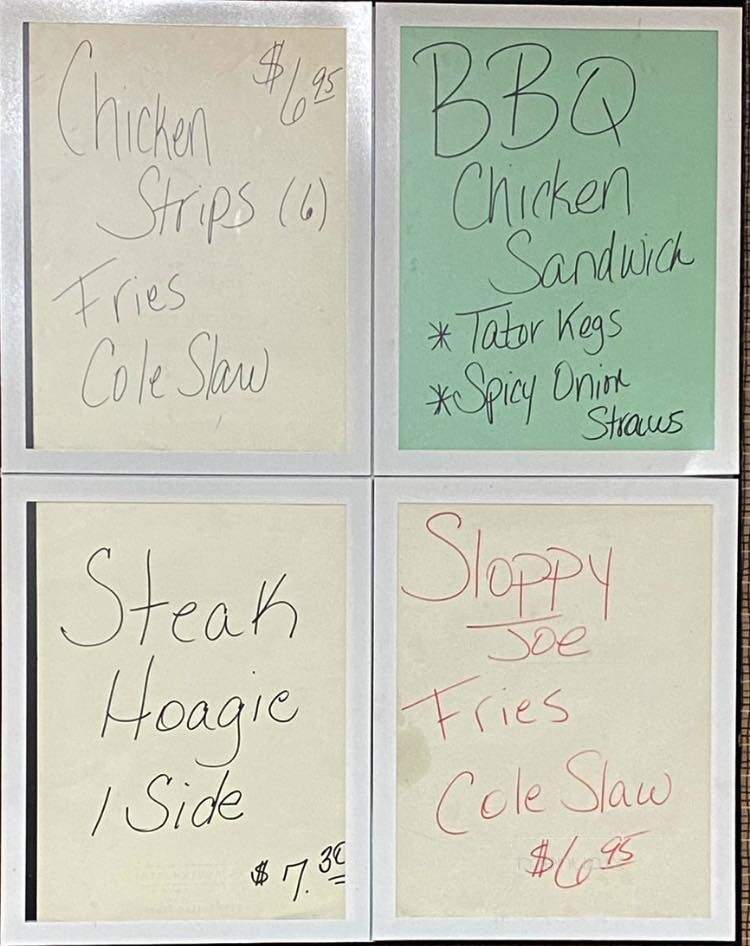 Chicken $6.95
Strips (6)
Fries
Cole Slaw
BBQ
Chicken
Sandwich
* Tator Kegs
* Spicy Onion
Straws
Steak
Hoagie
1 Side
$7.30
Sloppy
Joe
Fries
Cole Slaw
$6.95